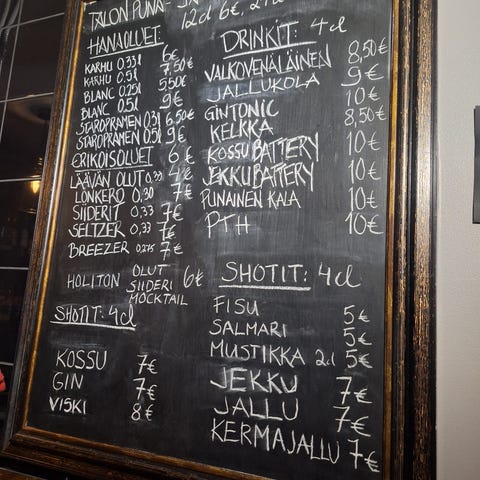 TALON PUNA-
12cl 6€,
HANAOLUET:
KARHU 0.33l 6€
KARHU 0.5l 7,50€
BLANC 0.25l 5,50€
BLANC 0.5l 9€
STAROPRAMEN 0.3l 6,50€
STAROPRAMEN 0.5l 9€
ERIKOISOLUET 6€
LÄÄVÄN OLUT 0,33 4€
LONKERO 0,30 7€
SIIDERIT 0,33 7€
SELTZER 0,33 7€
BREEZER 0,275 7€
HOLITON OLUT 6€
SIIDERI
MOCKTAIL
SHOTIT: 4cl
KOSSU 7€
GIN 7€
VISKI 8€
DRINKIT: 4cl
VALKOVENÄLÄINEN 8,50€
JALLUKOLA 9€
GINTONIC 10€
KELKKA 8,50€
KOSSUBATTERY 10€
JEKKUBATTERY 10€
PUNAINEN KALA 10€
PTH 10€
SHOTIT: 4cl
FISU 5€
SALMARI 5€
MUSTIKKA 2cl 5€
JEKKU 7€
JALLU 7€
KERMAJALLU 7€